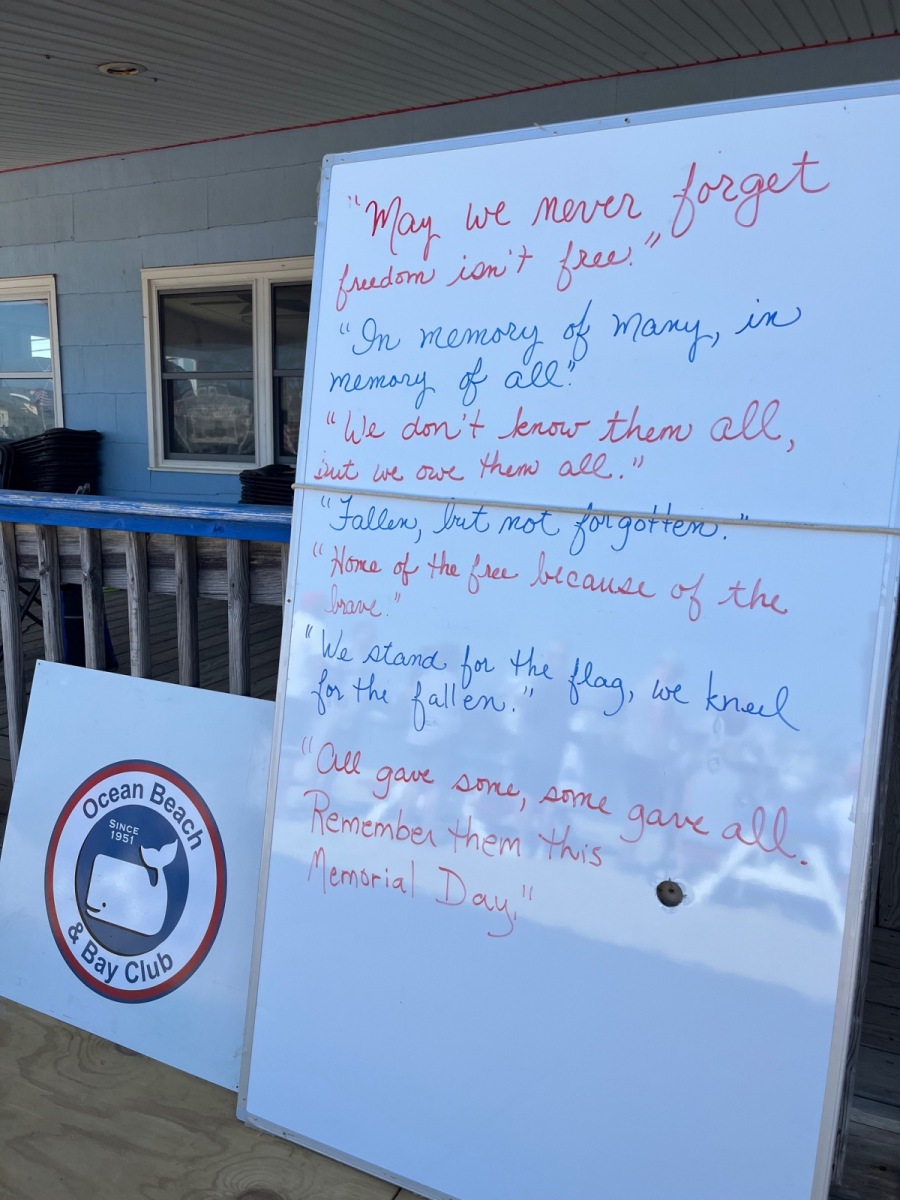 "May we never forget
freedom isn't free."
"In memory of many, in
memory of all."
"We don't know them all,
but we owe them all."
"Fallen, but not forgotten."
"Home of the free because of the
brave."
"We stand for the flag, we kneel
for the fallen."
"All gave some, some gave all.
Remember them this
Memorial Day."
Ocean Beach
SINCE
1951
& Bay Club